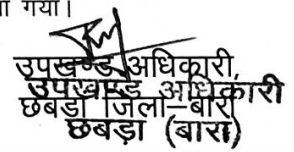 ा गया।
उपखण्ड अधिकारी,
उपखण्ड अधिकारी
छबडा जिला–बारां
छबड़ा (बारां)